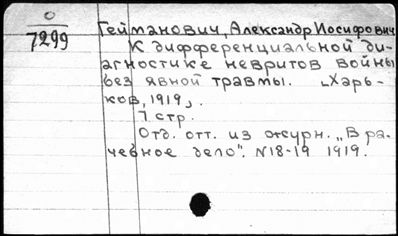 О
7299
Гейманович, Александр Иосифович
К дифференциальной ди-
агностике невритов войны
без явной травмы. [Харь-
ков, 1919].
7 стр.
Отд. отт. из журн. „Врa-
чебное дело". N18-19 1919.